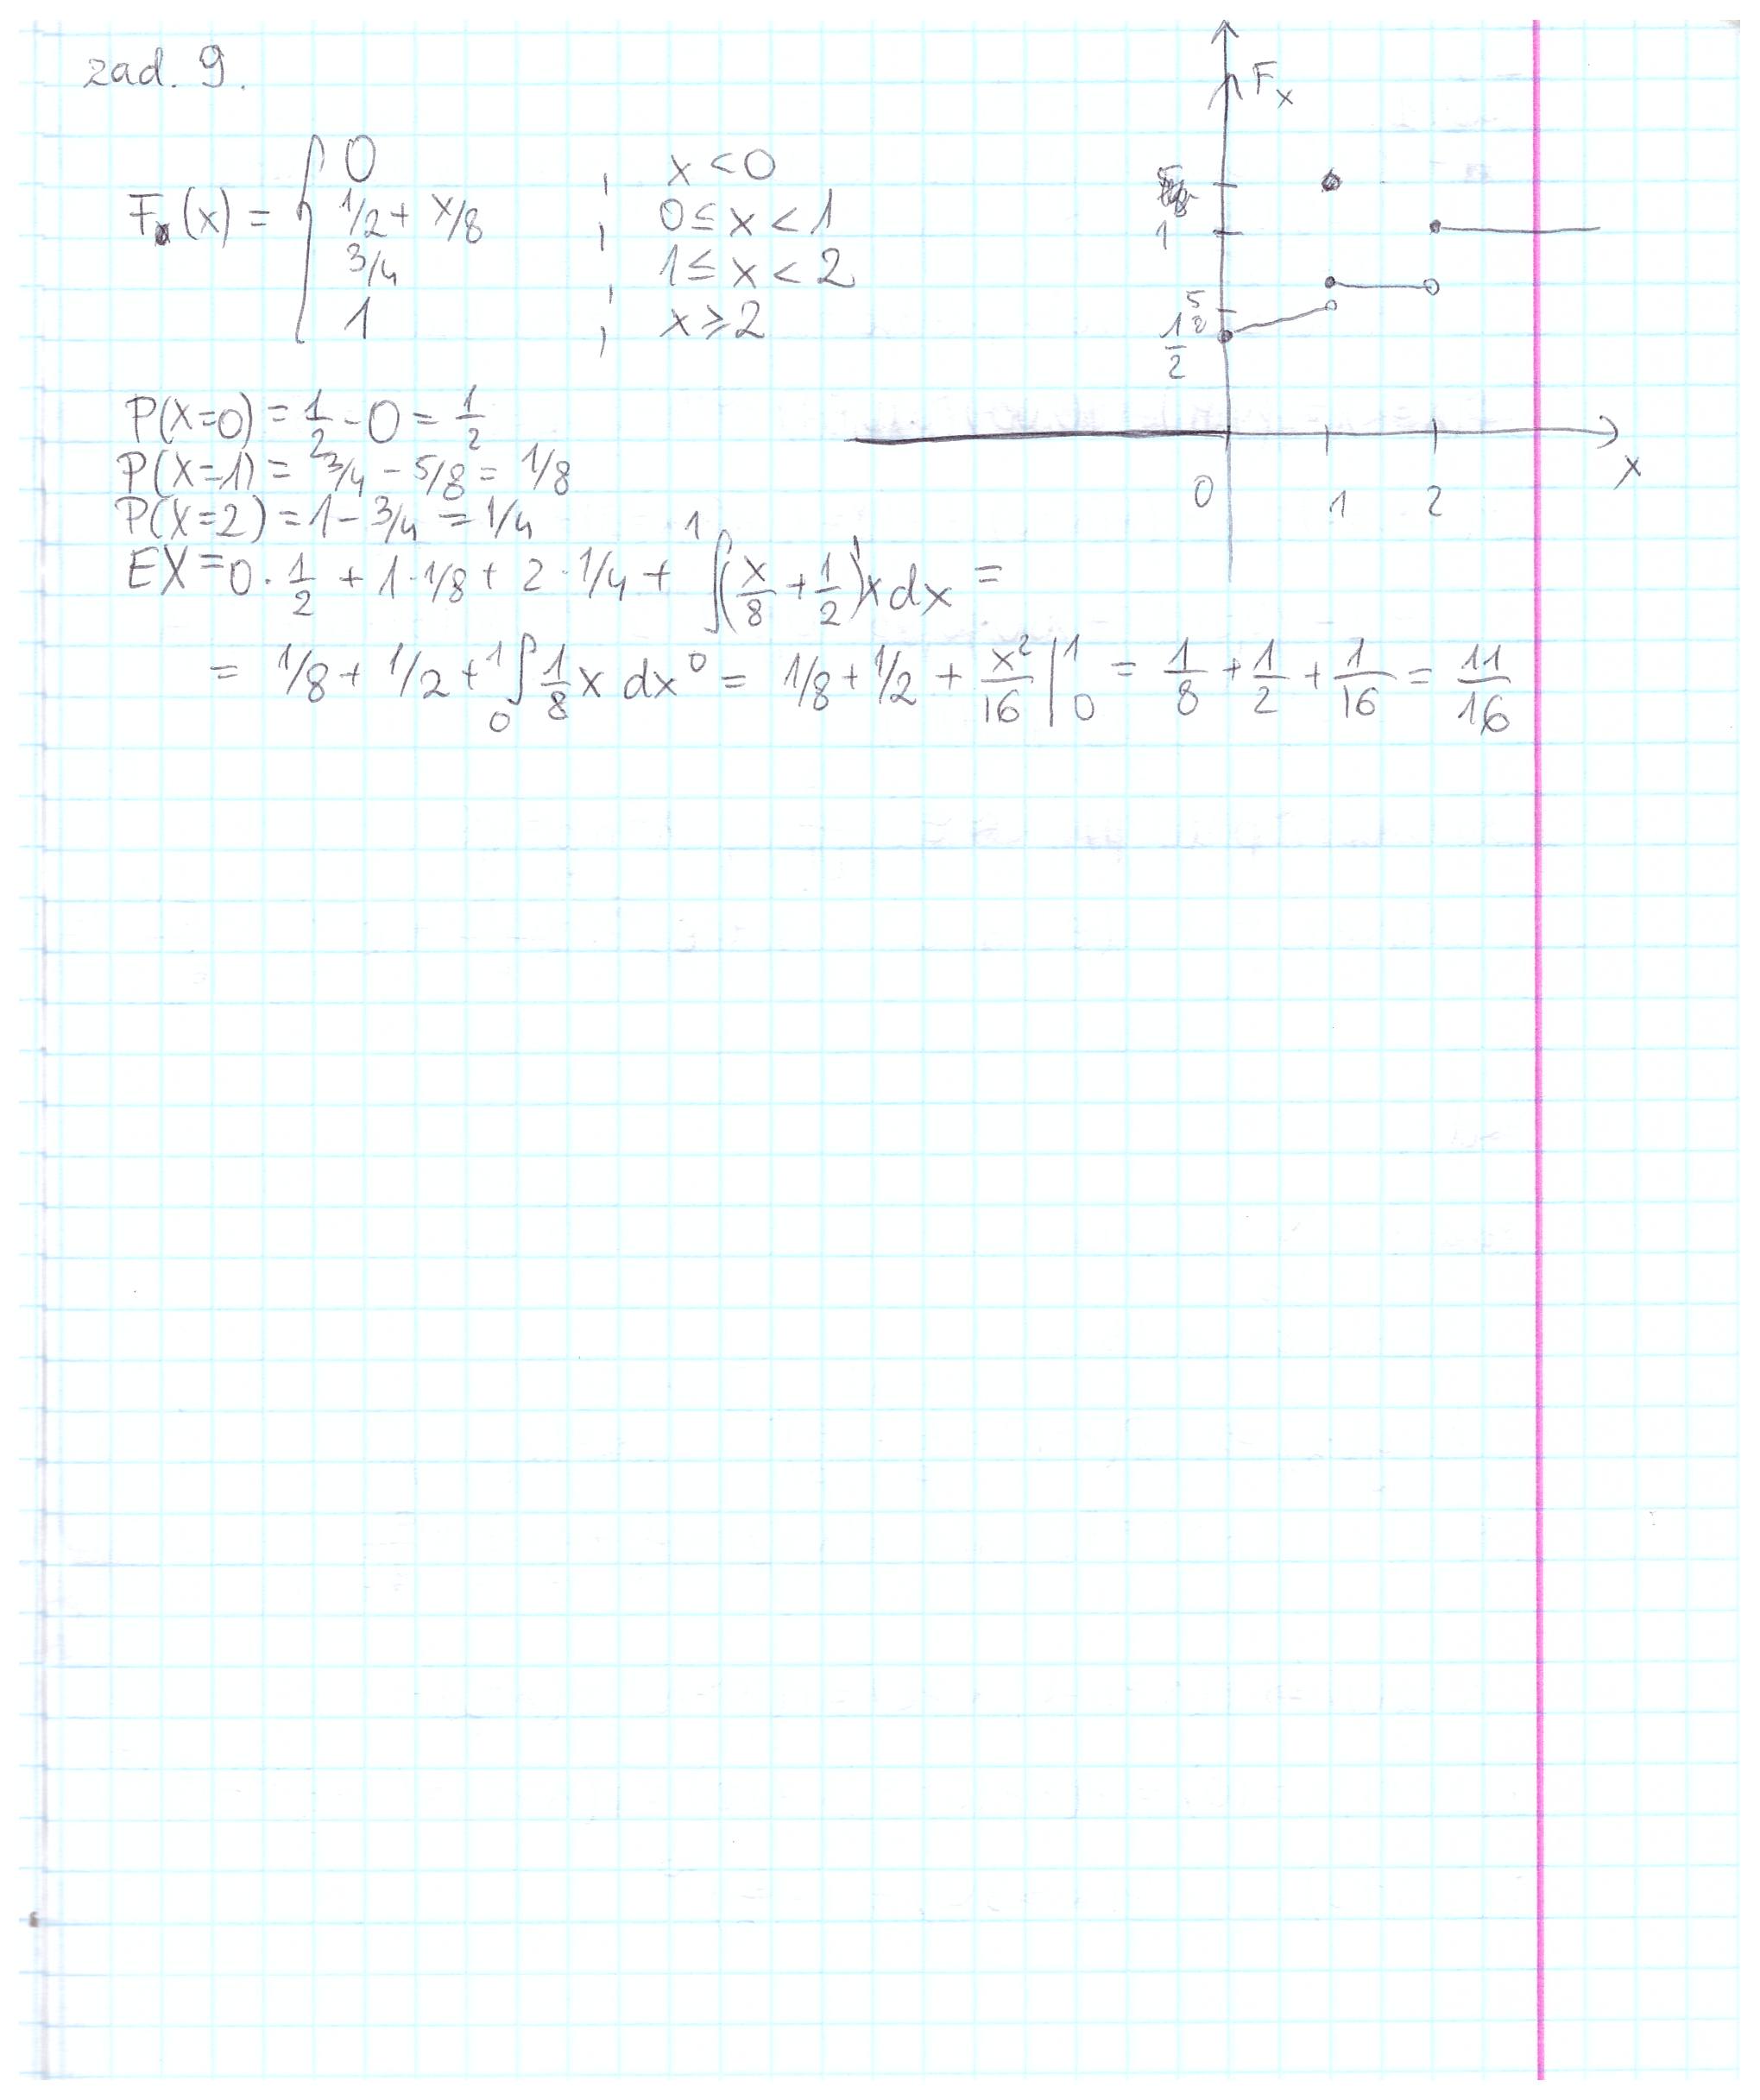 zad. 9.
F_X(x) = { 0 ; x < 0
1/2 + x/8 ; 0 ≤ x < 1
3/4 ; 1 ≤ x < 2
1 ; x ≥ 2
F_x
1
5
1/2
0 1 2 x
P(X=0) = 1/2 - 0 = 1/2
P(X=1) = 3/4 - 5/8 = 1/8
P(X=2) = 1 - 3/4 = 1/4
EX = 0 · 1/2 + 1 · 1/8 + 2 · 1/4 + ∫_0^1 (x/8 + 1/2)' x dx =
= 1/8 + 1/2 + ∫_0^1 1/8 x dx = 1/8 + 1/2 + x²/16 |_0^1 = 1/8 + 1/2 + 1/16 = 11/16